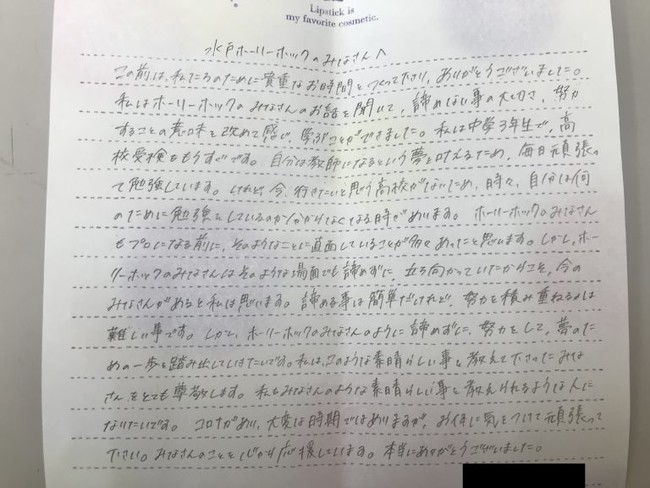 Lipstick is
my favorite cosmetic.
水戸ホーリーホックのみなさんへ
この前は、私たちのために貴重なお時間をつくって下さり、ありがとうございました。
私はホーリーホックのみなさんのお話を聞いて、諦めない事の大切さ、努力
することの意味を改めて感じ、学ぶことができました。私は中学3年生で、高
校受検ももうすぐです。自分は教師になるという夢を叶えるため、毎日頑張っ
て勉強しています。けれど、今、行きたいと思う高校がないため、時々、自分は何
のために勉強をしているのか分からなくなる時があります。ホーリーホックのみなさん
もプロになる前に、そのようなことに直面していることが多々あったと思います。しかし、ホー
リーホックのみなさんはそのような場面でも諦めずに、立ち向かっていたからこそ、今の
みなさんがあると私は思います。諦める事は簡単だけれど、努力を積み重ねるのは
難しい事です。しかし、ホーリーホックのみなさんのように諦めずに、努力をして、夢のた
めの一歩を踏み出していきたいです。私は、このような素晴らしい事を教えて下さったみな
さんをとても尊敬します。私もみなさんのような素晴らしい事を教えられるような人に
なりたいです。コロナがあり、大変な時期ではありますが、お体に気をつけて頑張って
下さい。みなさんのことを心から応援しています。本当にありがとうございました。